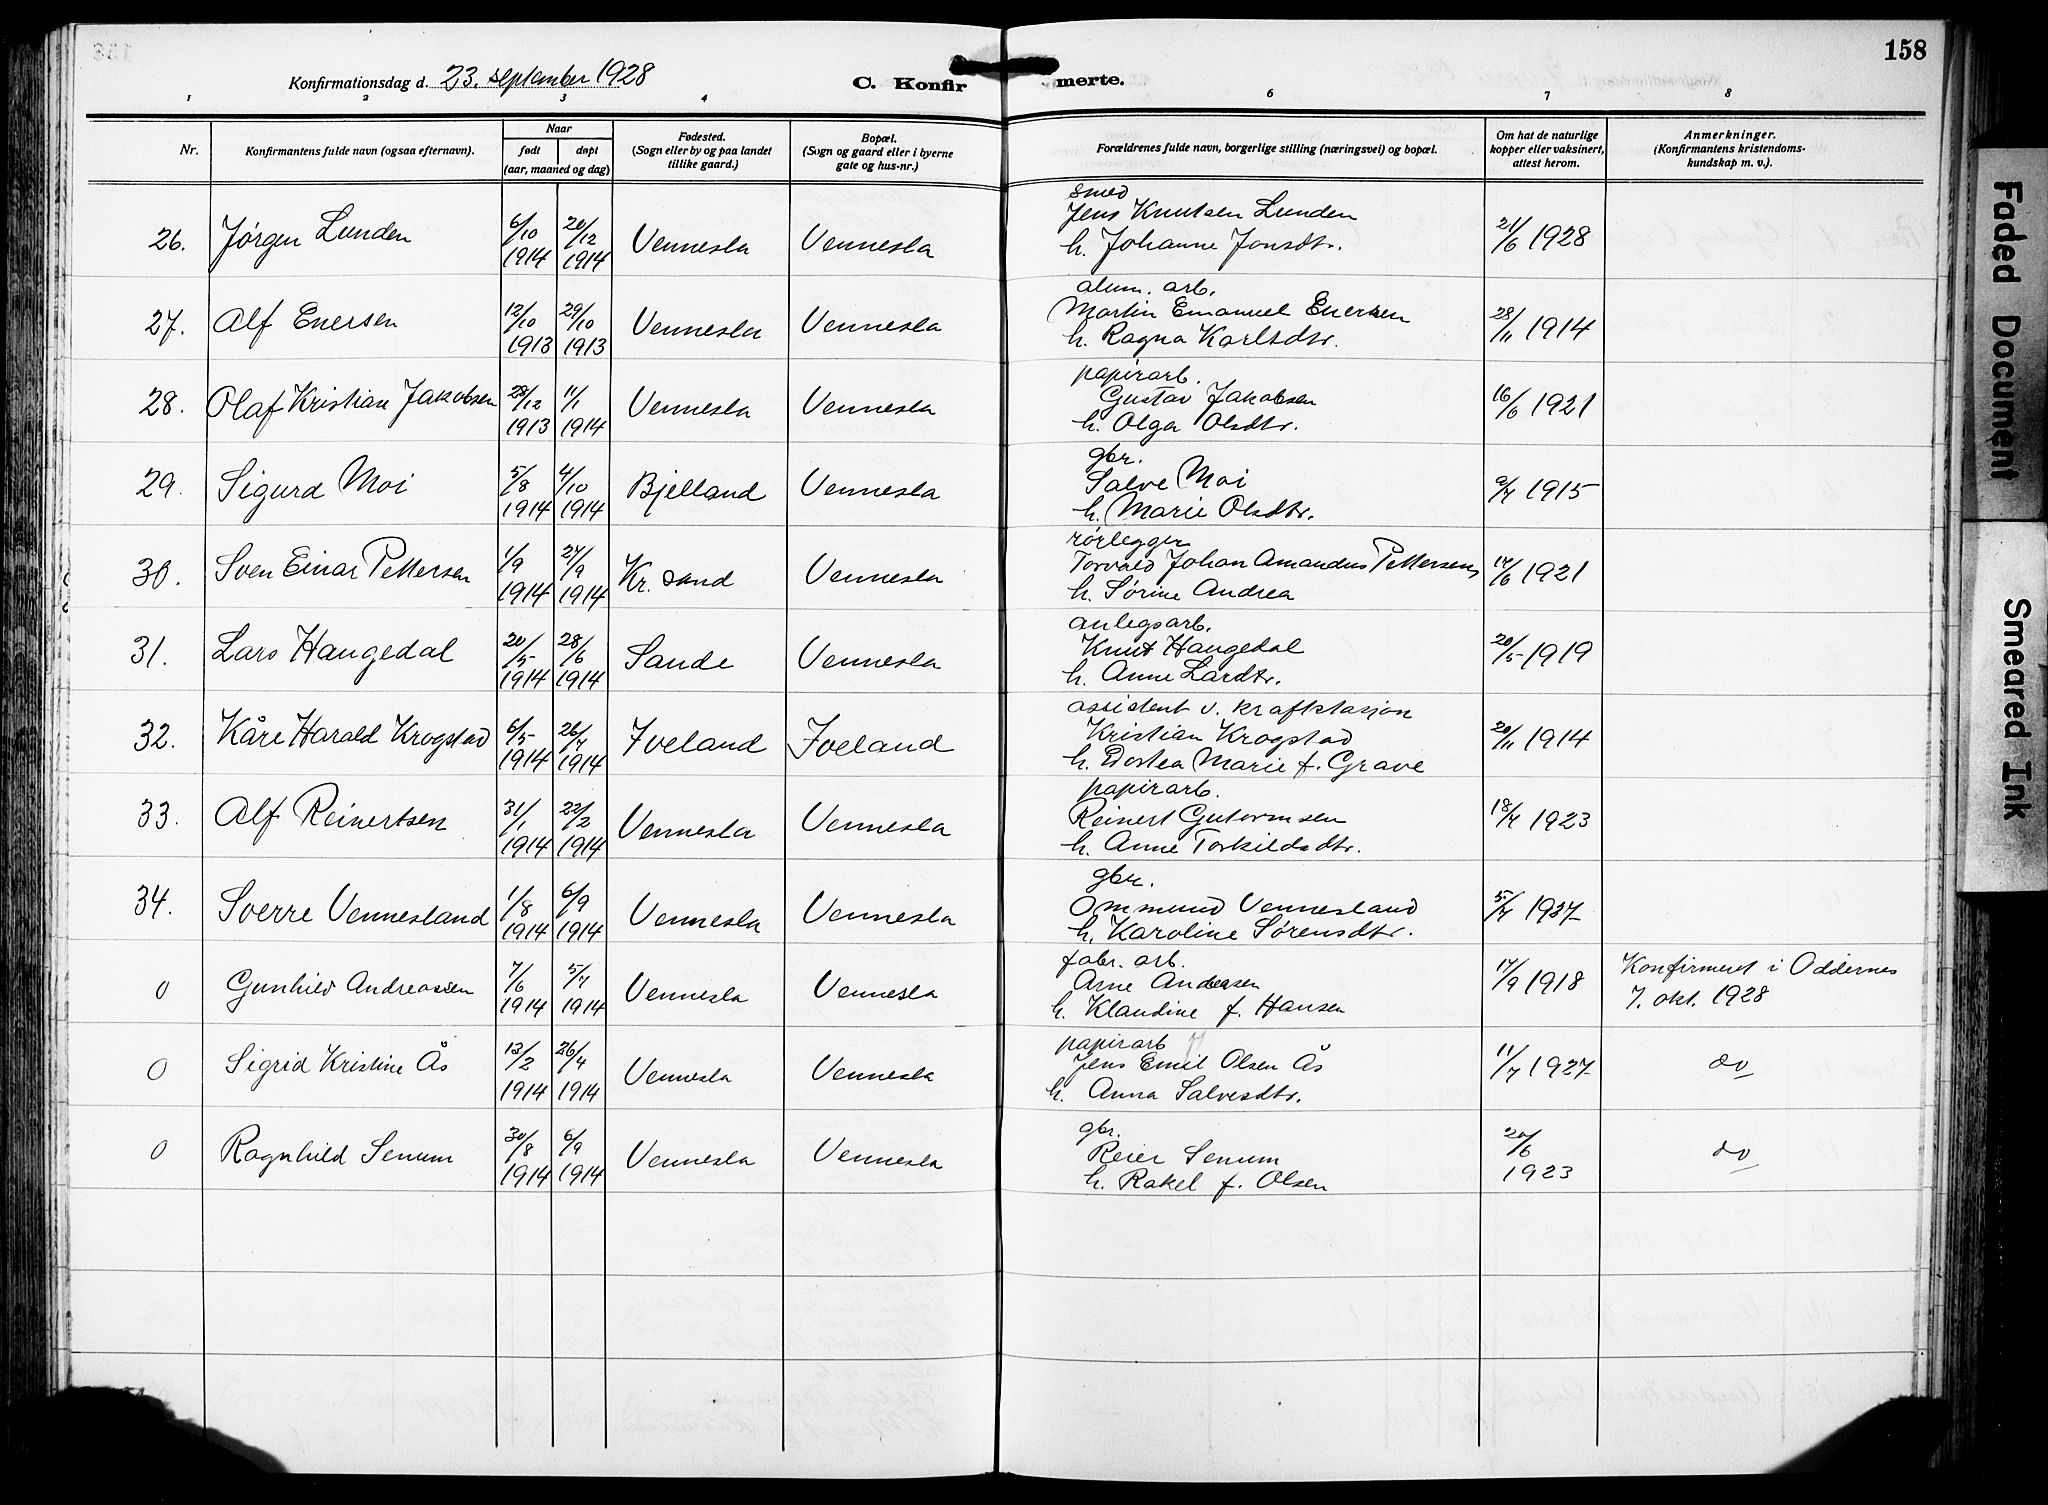 158
Konfirmationsdag d. 23. september 1928
C. Konfir merte.
1 2 3 4 6 7 8
Nr.
Konfirmantens fulde navn (ogsaa efternavn).
Naar
født døpt
(aar, maaned og dag)
Fødested.
(Sogn eller by og paa landet
tillike gaard.)
Bopæl.
(Sogn og gaard eller i byerne
gate og hus-nr.)
Forældrenes fulde navn, borgerlige stilling (næringsvei) og bopæl.
Om hat de naturlige
kopper eller vaksinert,
attest herom.
Anmerkninger.
(Konfirmantens kristendoms-
kundskap m. v.).
smed
26. Jørgen Lunden 6/10 1914 20/12 1914 Vennesla Vennesla Jens Knutsen Lunden 21/6 1928
h. Johanne Jonsdtr.
alum. arb.
27. Alf Enersen 12/10 1913 29/10 1913 Vennesla Vennesla Martin Emanuel Enersen 28/11 1914
h. Ragna Karlsdtr.
papirarb.
28. Olaf Kristian Jakobsen 28/12 1913 11/1 1914 Vennesla Vennesla Gustav Jakobsen 16/6 1921
h. Olga Olsdtr.
gbr.
29. Sigurd Moi 5/8 1914 4/10 1914 Bjelland Vennesla Salve Moi 9/7 1915
h. Marie Olsdtr.
rørlegger
30. Sven Einar Pettersen 1/9 1914 27/9 1914 Kr. sand Vennesla Torvald Johan Amandus Pettersen 14/6 1921
h. Sørine Andrea
anlegsarb.
31. Lars Haugedal 20/5 1914 28/6 1914 Sande Vennesla Knut Haugedal 20/5 1919
h. Anne Larsdtr.
assistent v. kraftstasjon
32. Kåre Harald Krogstad 6/5 1914 26/7 1914 Iveland Iveland Kristian Krogstad 20/11 1914
h. Dortea Marie f. Grave
papirarb.
33. Alf Reinertsen 31/1 1914 22/2 1914 Vennesla Vennesla Reinert Gutormsen 18/7 1923
h. Anne Torkildsdtr.
gbr.
34. Sverre Vennesland 1/8 1914 6/9 1914 Vennesla Vennesla Ommund Vennesland 5/7 1927
h. Karoline Sørensdtr.
fabr. arb.
0 Gunhild Andreassen 7/6 1914 5/7 1914 Vennesla Vennesla Arne Andreasen 17/9 1918 Konfirmeret i Oddernes
h. Klaudine f. Hansen 7. okt. 1928
papirarb
0 Sigrid Kristine Ås 13/2 1914 26/4 1914 Vennesla Vennesla Jens Emil Olsen Ås 11/7 1927 do
h. Anna Salvesdtr.
gbr.
0 Ragnhild Senum 30/8 1914 6/9 1914 Vennesla Vennesla Reier Senum 20/6 1923 do
h. Rakel f. Olsen
Faded Document
Smeared Ink